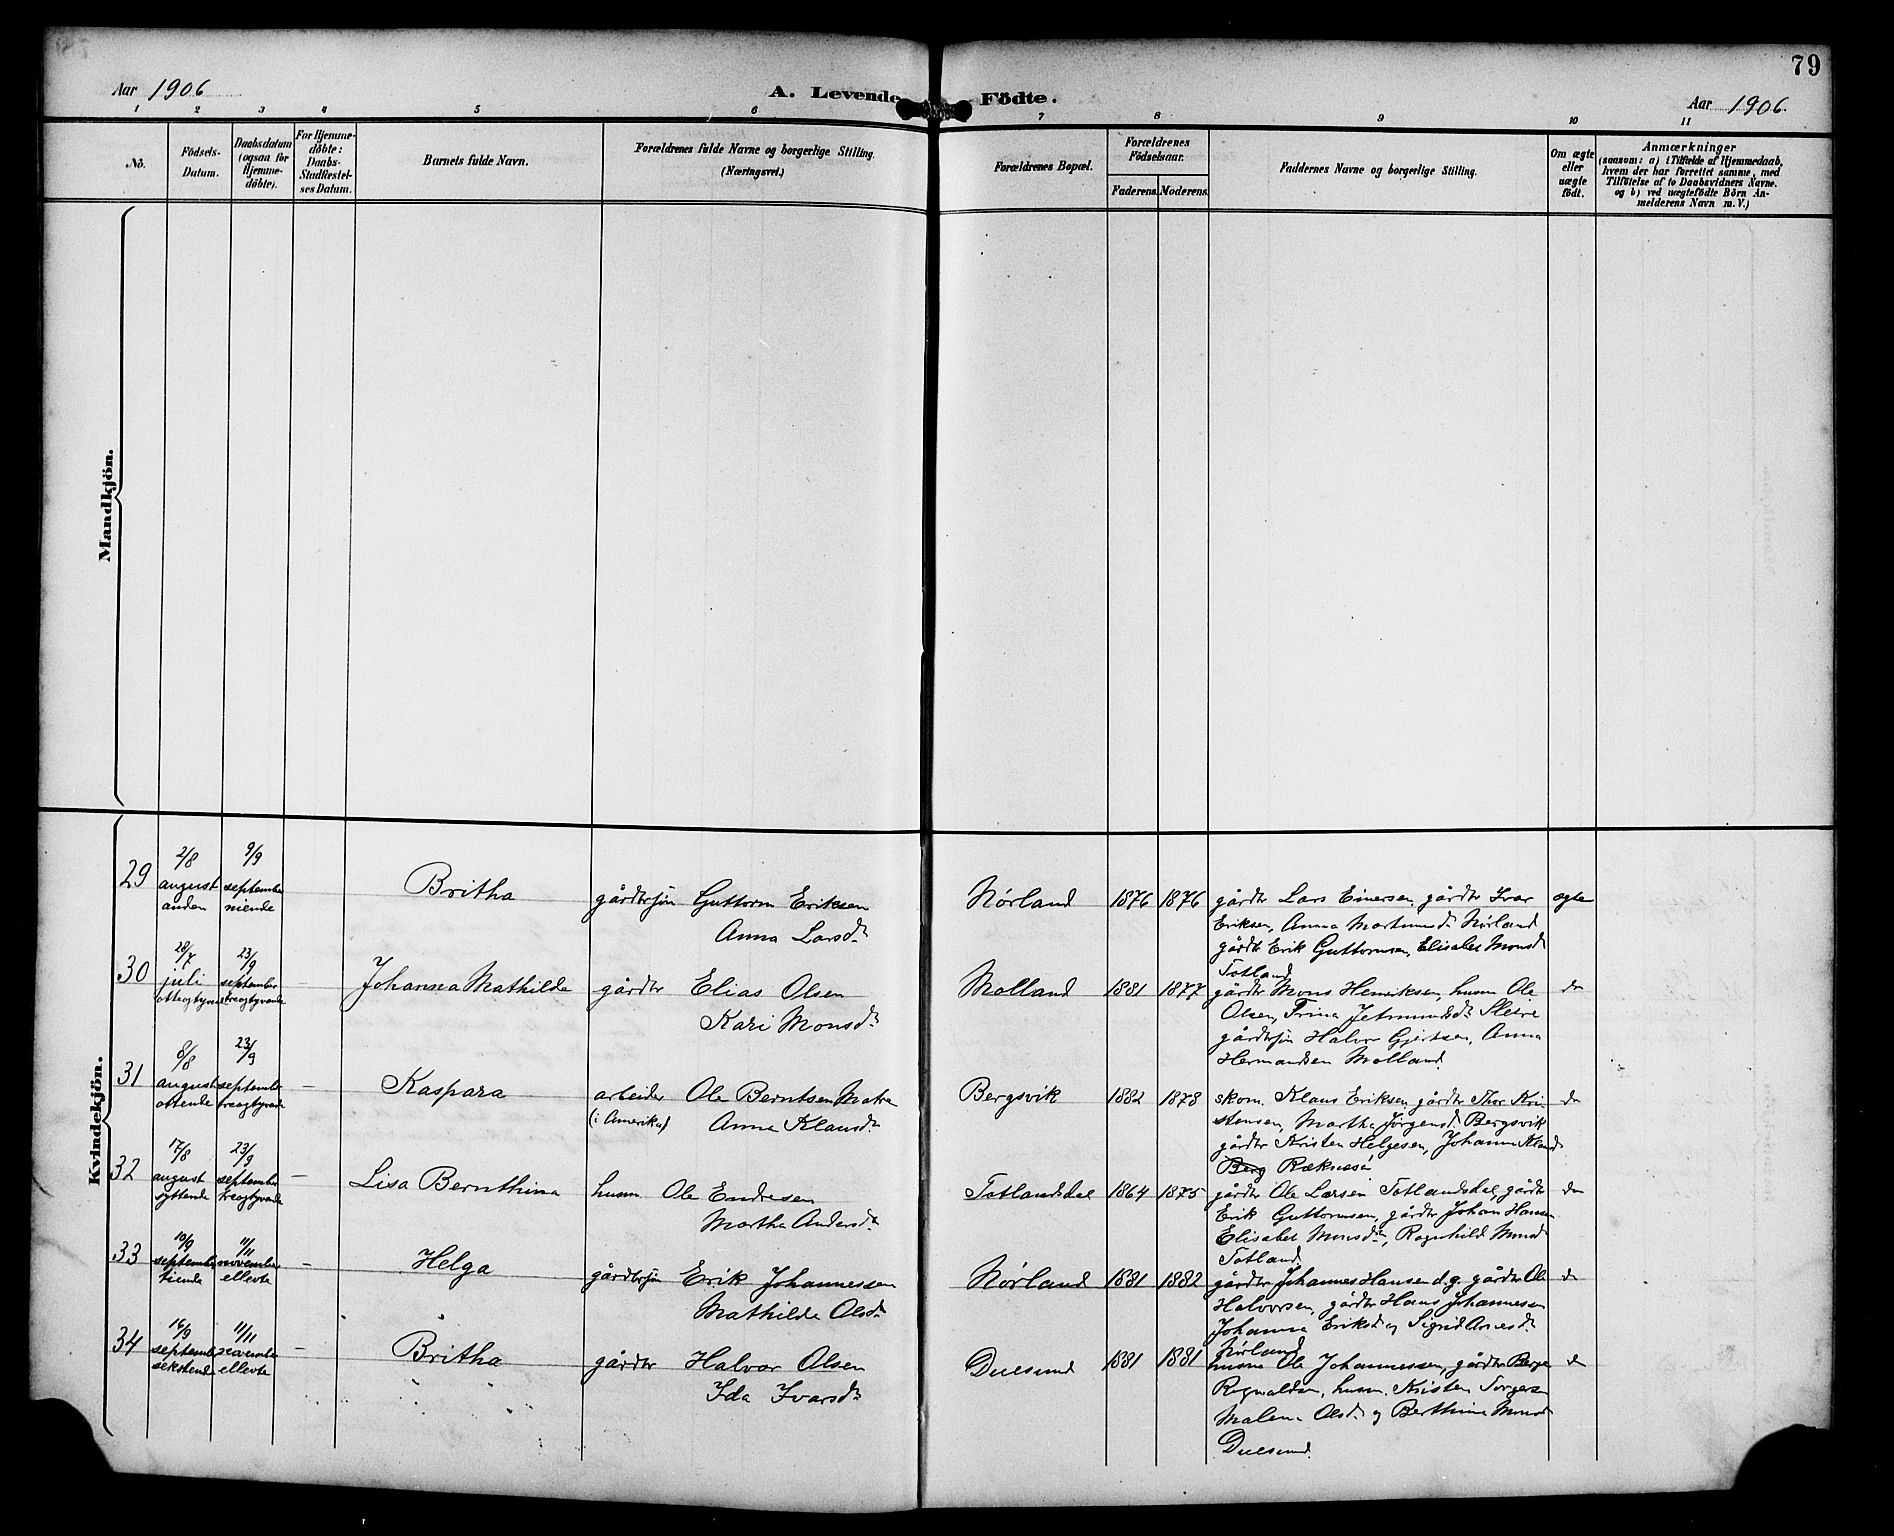 79
Aar 1906
A. Levende Födte.
Aar 1906.
1 2 3 4 5 6 7 8 9 10 11
Nö.
Födsels-Datum.
Daabsdatum (ogsaa for Hjemme-döbte).
For Hjemme-döbte: Daabs-Stadfestel-ses Datum.
Barnets fulde Navn.
Forældrenes fulde Navne og borgerlige Stilling. (Næringsvei.)
Forældrenes Bopæl.
Forældrenes Födselsaar.
Faderens. Moderens.
Faddernes Navne og borgerlige Stilling.
Om ægte eller uægte födt.
Anmærkninger
(saasom: a) i Tilfælde af Hjemmedaab,
hvem der har forrettet samme, med
Tilföielse af to Daabsvidners Navne.
og b) ved uægtefödte Börn An-
melderens Navn m.V.)
Mandkjön.
Kvindekjön.
29 2/8 august anden 9/9 september niende Britha gårdbrsön Guttorm Eriksen
Anna Larsdr
Nörland 1876 1876 gårdbr Lars Einersen, gårdbr Ivar ægte
Eriksen, Anna Nörland
gårdbr Erik Guttormsen, Elisabet Monsd
Totland
30 28/7 juli otteogtyvende 23/9 september treogtyvende — Johanna Mathilde gårdbr Elias Olsen
Kari Monsdr
Molland 1881 1877 gårdbr Mons Henriksen, husm Ole do
Olsen, Trina Sletre
gårdbrsön Halvor Gjertsen, Anna
Hermandsen Molland
31 8/8 august ottende 23/9 september treogtyvende — Kaspara arbeider Ole Berntsen Matre
(i Amerika) Anna Klausdr
Bergsvik 1882 1878 skom. Klaus Eriksen gårdbr Thor Kri- do
stensen, Martha Jørgensd. Bergsvik
gårdbr Kristen Helgesen, Johanne Klausd
Berg Ræknesö
32 17/8 august syttende 23/9 september treogtyvende — Lisa Bernthina husm. Ole Endresen
Martha Andersdr
Totlandsdal 1864 1875 gårdbr Ole Larsen Totlandsdal, gårdbr do
Erik Guttormsen, gårdbr Johan Hansen
Elisabet Monsdr, Ragnhild Monsd
Totland
33 10/9 september tiende 11/11 november ellevte — Helga gårdbrsön Erik Johannessen
Mathilde Olsdr
Nörland 1881 1882 gårdbr Johannes Hansen d.g. gårdbr Ole do
Halvorsen, gårdbr Hans Johannesen
Johanna Eriksd og Sigrid Arnesdr
Nörland
34 16/9 september sekstende 11/11 november ellevte — Britha gårdbr Halvor Olsen
Ida Ivarsdr
Duesund 1881 1881 husm Ole Johannessen, gårdbr Berge do
Rognvaldsen, husm. Kristen Torgersen
Malena Olsd. og Berthine Monsd
Duesund.